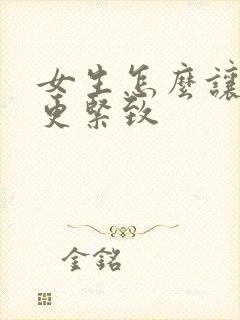 女生怎麼讓
更緊致
金銘